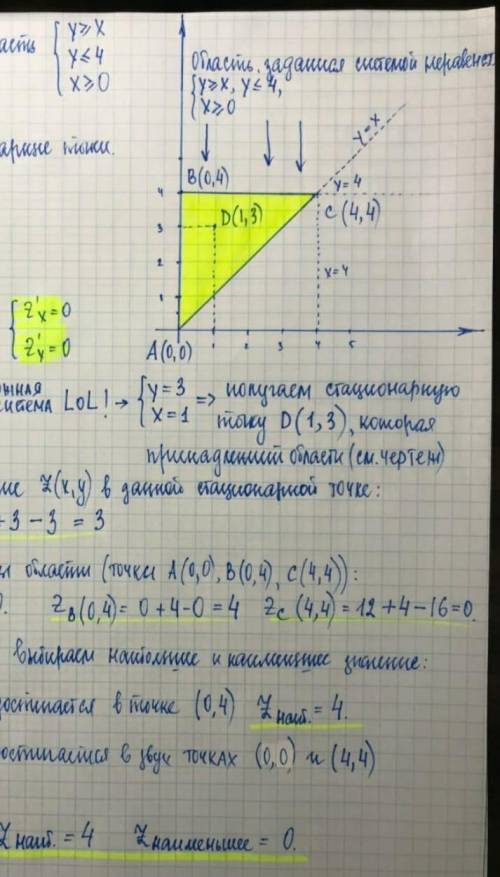 асть { y ⩾ x
y ≤ 4
x ⩾ 0
Область, заданная системой неравенст
{ y ⩾ x, y ≤ 4,
x ⩾ 0
арные точки.
y = x
B(0,4)
y=4
4
D(1,3)
C(4,4)
3
2
x=4
1
{ z'x = 0
z'y = 0
A(0,0)
1 2 3 4 5
система LOL! → { y = 3
x = 1 => получаем стационарную
точку D(1,3), которая
принадлежит области (см. чертеж)
ие z(x,y) в данной стационарной точке:
+3 − 3 = 3
области (точки A(0,0), B(0,4), C(4,4)):
0. zB(0,4) = 0 + 4 − 0 = 4 zC(4,4) = 12 + 4 − 16 = 0.
выбираем наибольшее и наименьшее значение:
достигается в точке (0,4) zнаиб. = 4.
остигается в двух точках (0,0) и (4,4)
zнаиб. = 4 zнаименьшее = 0.